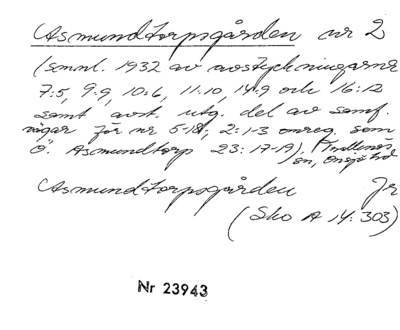 Asmundtorpsgården nr 2
(samml. 1932 av avstyckningarna
7:5, 9:9, 10:6, 11:10, 14:9 och 16:12
samt avst. utg. del av samf.
vägar för nr 5-18, 2:1-3 omreg. som
Ö. Asmundtorp 23: 17-19), Trollenäs
sn, Onsjö hd
Asmundtorpsgården Jr
(Sko A 14: 303)
Nr 23943